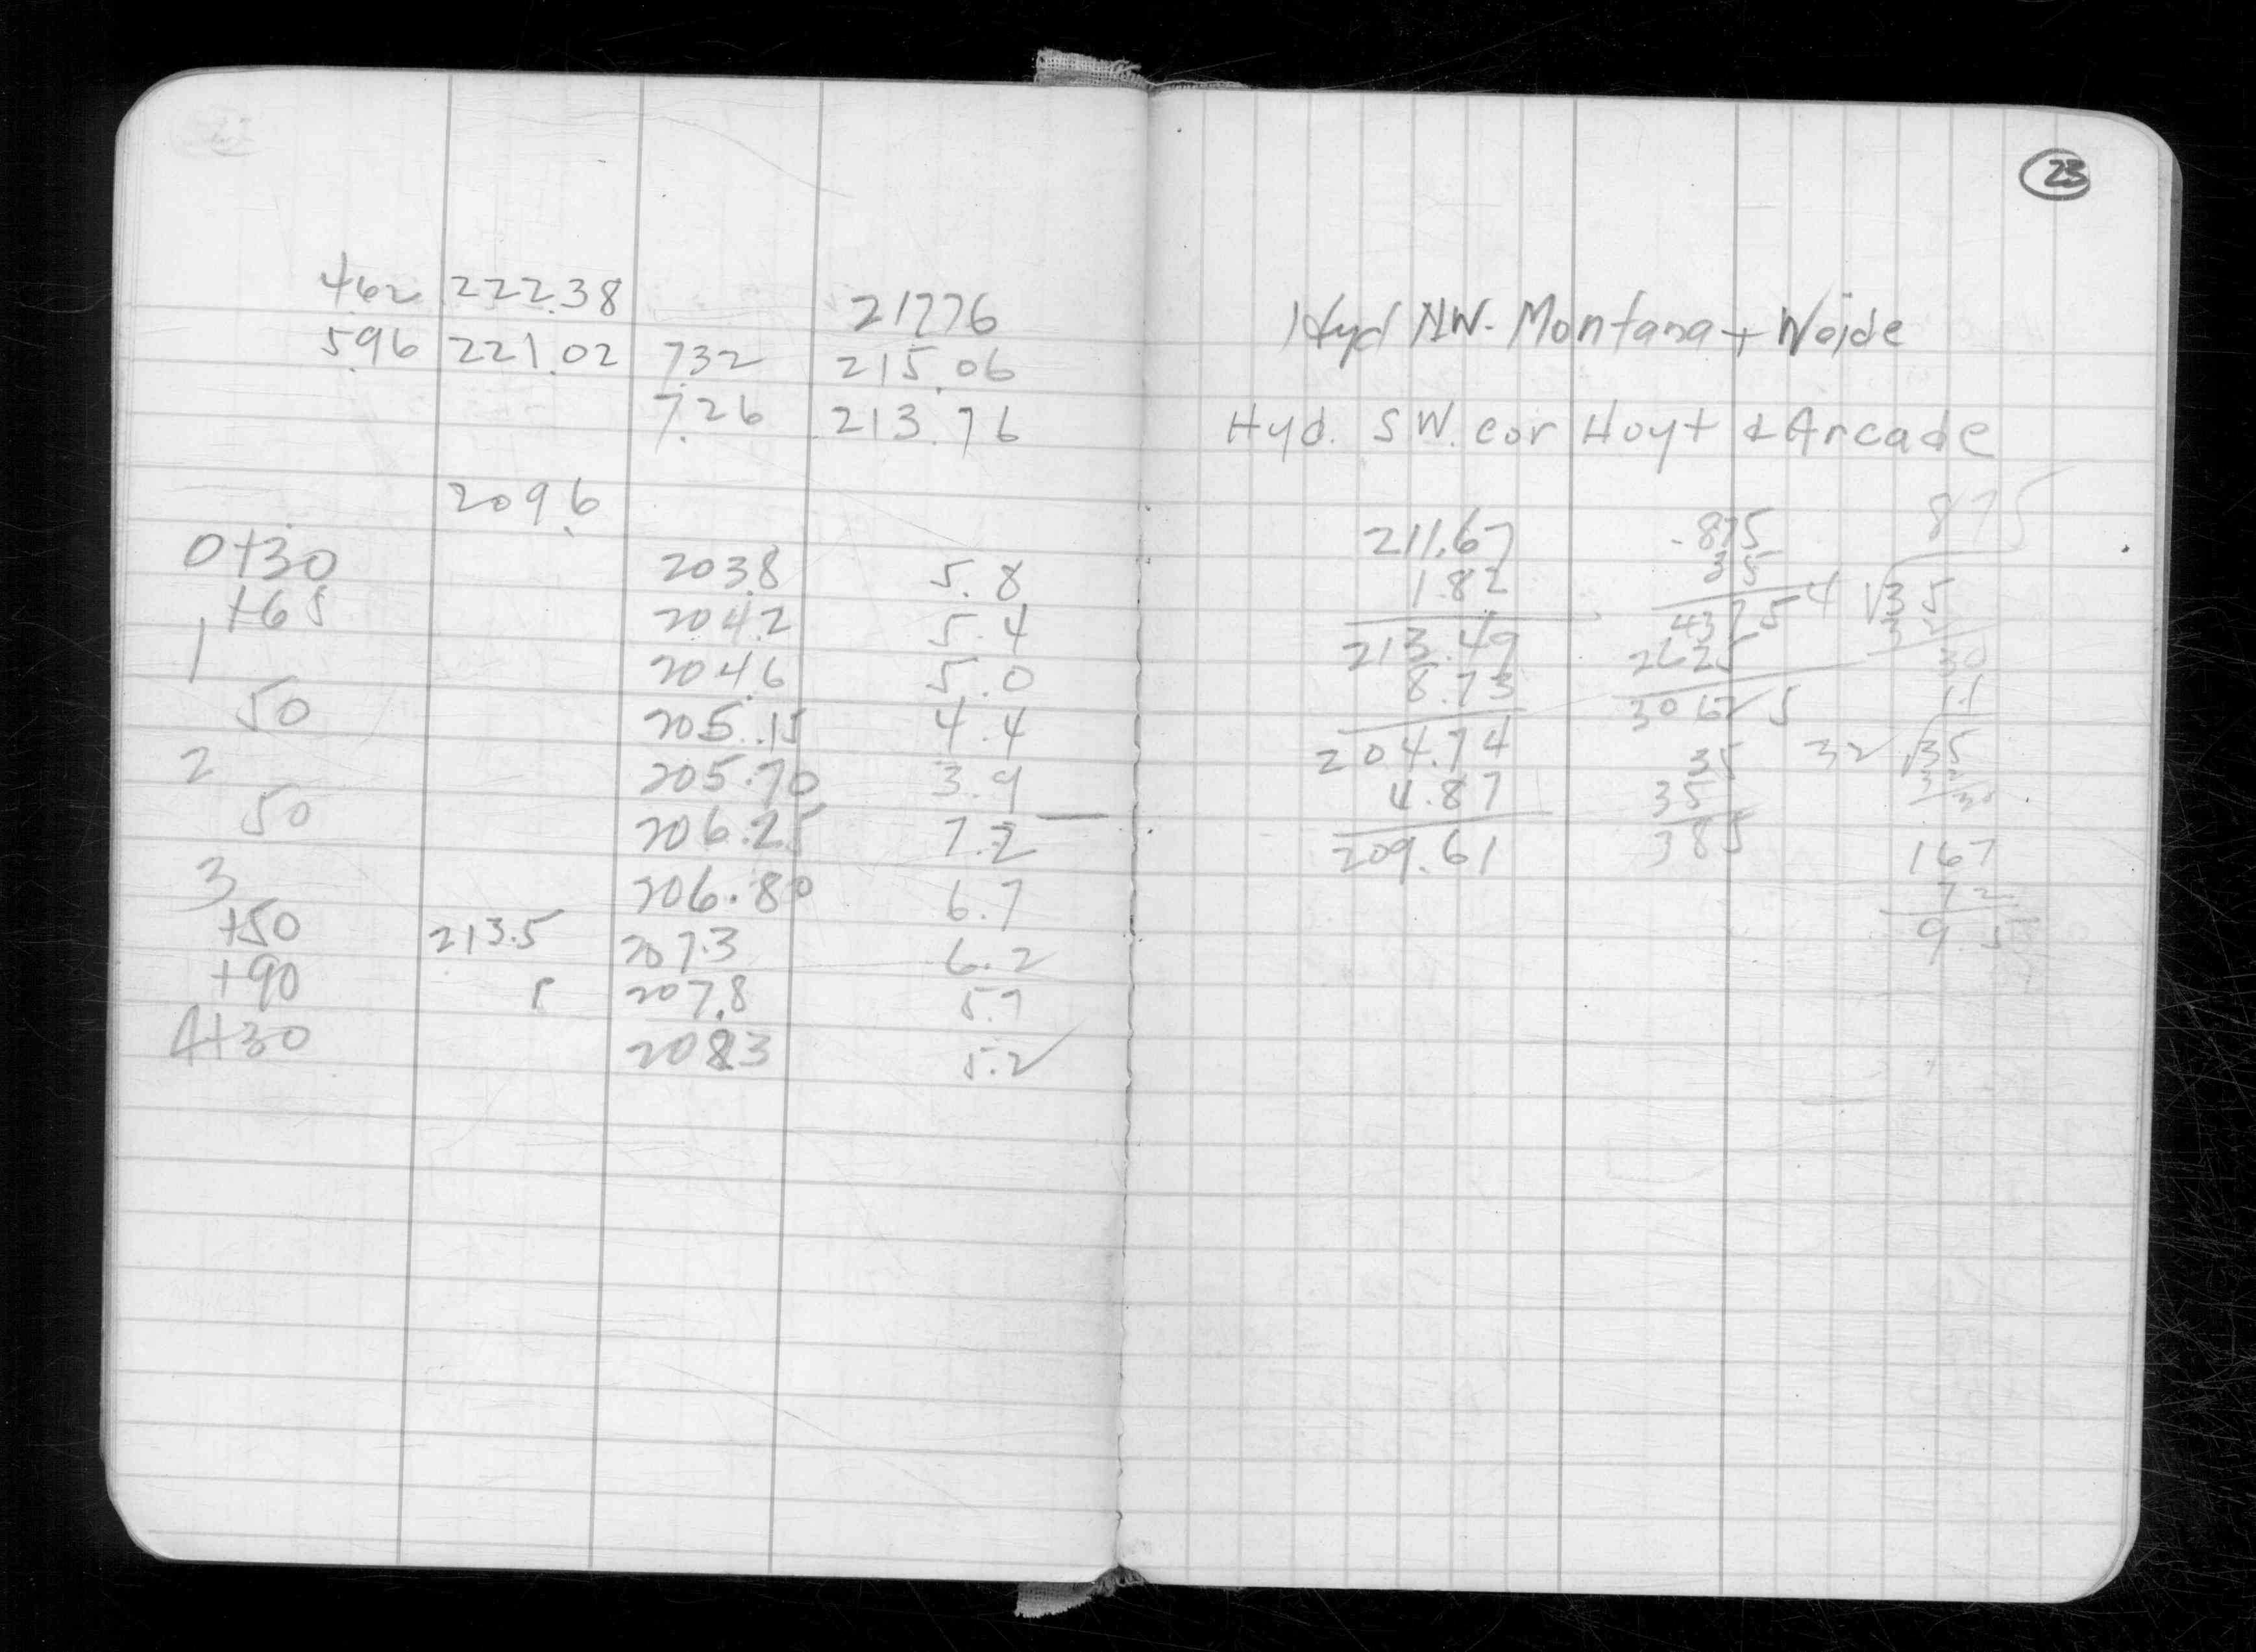 23
4.62 222.38 217.76
5.96 221.02 7.32 215.06
7.26 213.76
209.6
0+30 203.8 5.8
+65 204.2 5.4
1 204.6 5.0
50 205.15 4.4
2 205.70 3.9
50 206.25 7.2
3 206.80 6.7
+50 213.5 207.3 6.2
+90 207.8 5.7
4+30 208.3 5.2
Hyd NW. Montana + Weide
Hyd. SW. cor Hoyt & Arcade
211.67
1.82
213.49
8.73
204.74
4.87
209.61
.875
35
4375
2625
30625
35
35
385
875
4 35
32
30
1.1
32 35
32
30
167
72
9.5